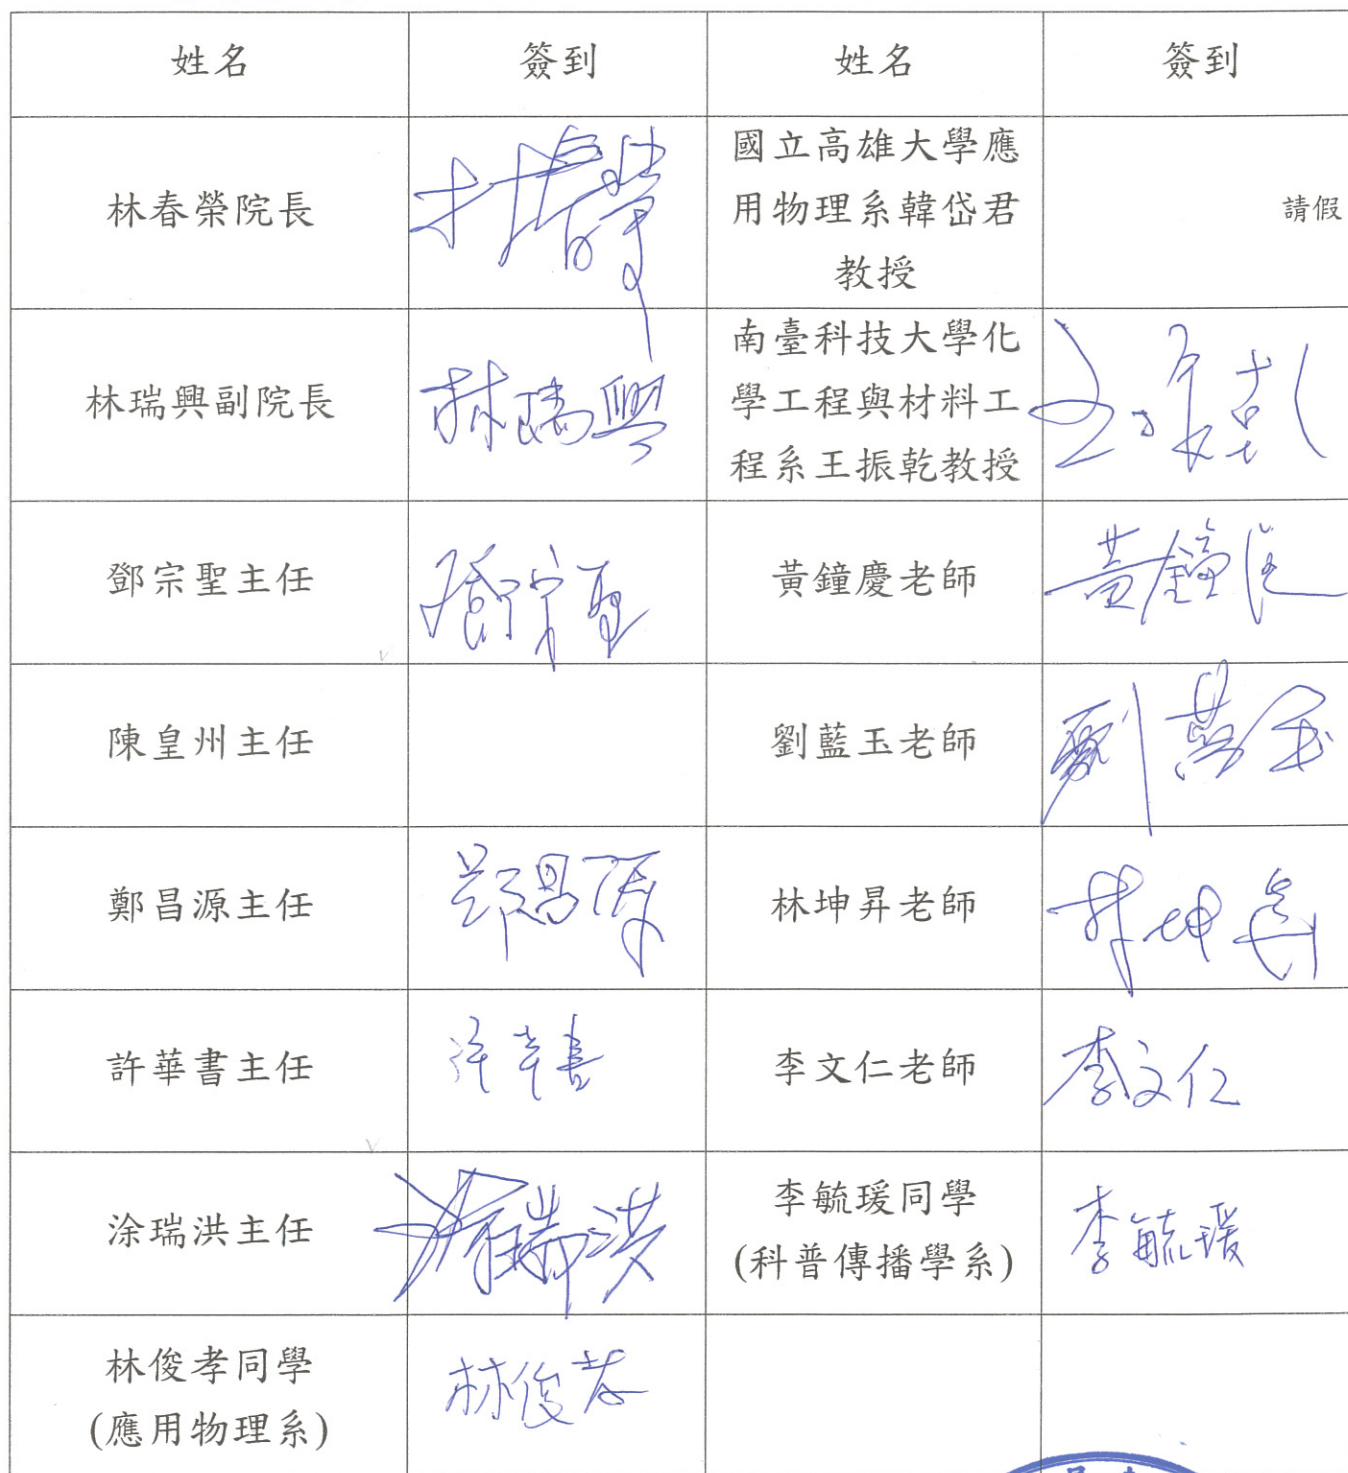 姓名 簽到 姓名 簽到
林春榮院長 林春榮
國立高雄大學應
用物理系韓岱君
教授
請假
林瑞興副院長 林瑞興
南臺科技大學化
學工程與材料工
程系王振乾教授
王振乾
鄧宗聖主任 鄧宗聖 黃鐘慶老師 黃鐘慶
陳皇州主任 劉藍玉老師 劉藍玉
鄭昌源主任 鄭昌源 林坤昇老師 林坤昇
許華書主任 許華書 李文仁老師 李文仁
涂瑞洪主任 涂瑞洪
李毓瑗同學
(科普傳播學系)
李毓瑗
林俊孝同學
(應用物理系)
林俊孝